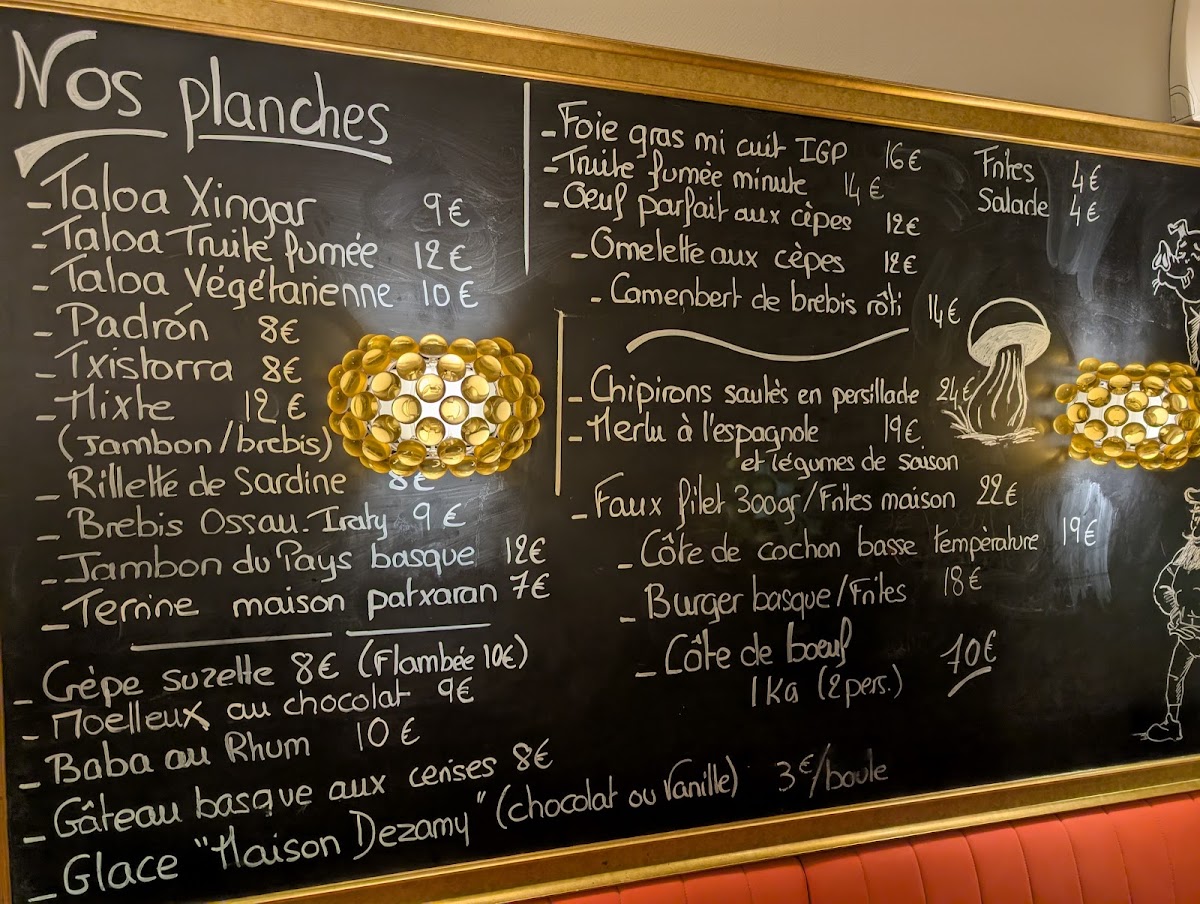 Nos planches
- Taloa Xingar 9€
- Taloa Truite fumée 12€
- Taloa Végétarienne 10€
- Padrón 8€
- Txistorra 8€
- Mixte 12€
(Jambon/brebis)
- Rillette de Sardine 8€
- Brebis Ossau-Iraty 9€
- Jambon du Pays basque 12€
- Terrine maison patxaran 7€
- Crèpe suzette 8€ (Flambée 10€)
- Moelleux au chocolat 9€
- Baba au Rhum 10€
- Gâteau basque aux cerises 8€
- Glace "Maison Dezamy" (chocolat ou vanille) 3€/boule
- Foie gras mi cuit IGP 16€
- Truite fumée minute 14€
- Oeuf parfait aux cèpes 12€
- Omelette aux cèpes 12€
- Camenbert de brebis rôti 14€
- Chipirons sautés en persillade 24€
- Merlu à l'espagnole 19€
et légumes de saison
- Faux filet 300gr/Frites maison 22€
- Côte de cochon basse température 19€
- Burger basque/Frites 18€
- Côte de boeuf 70€
1Kg (2pers.)
Frites 4€
Salade 4€